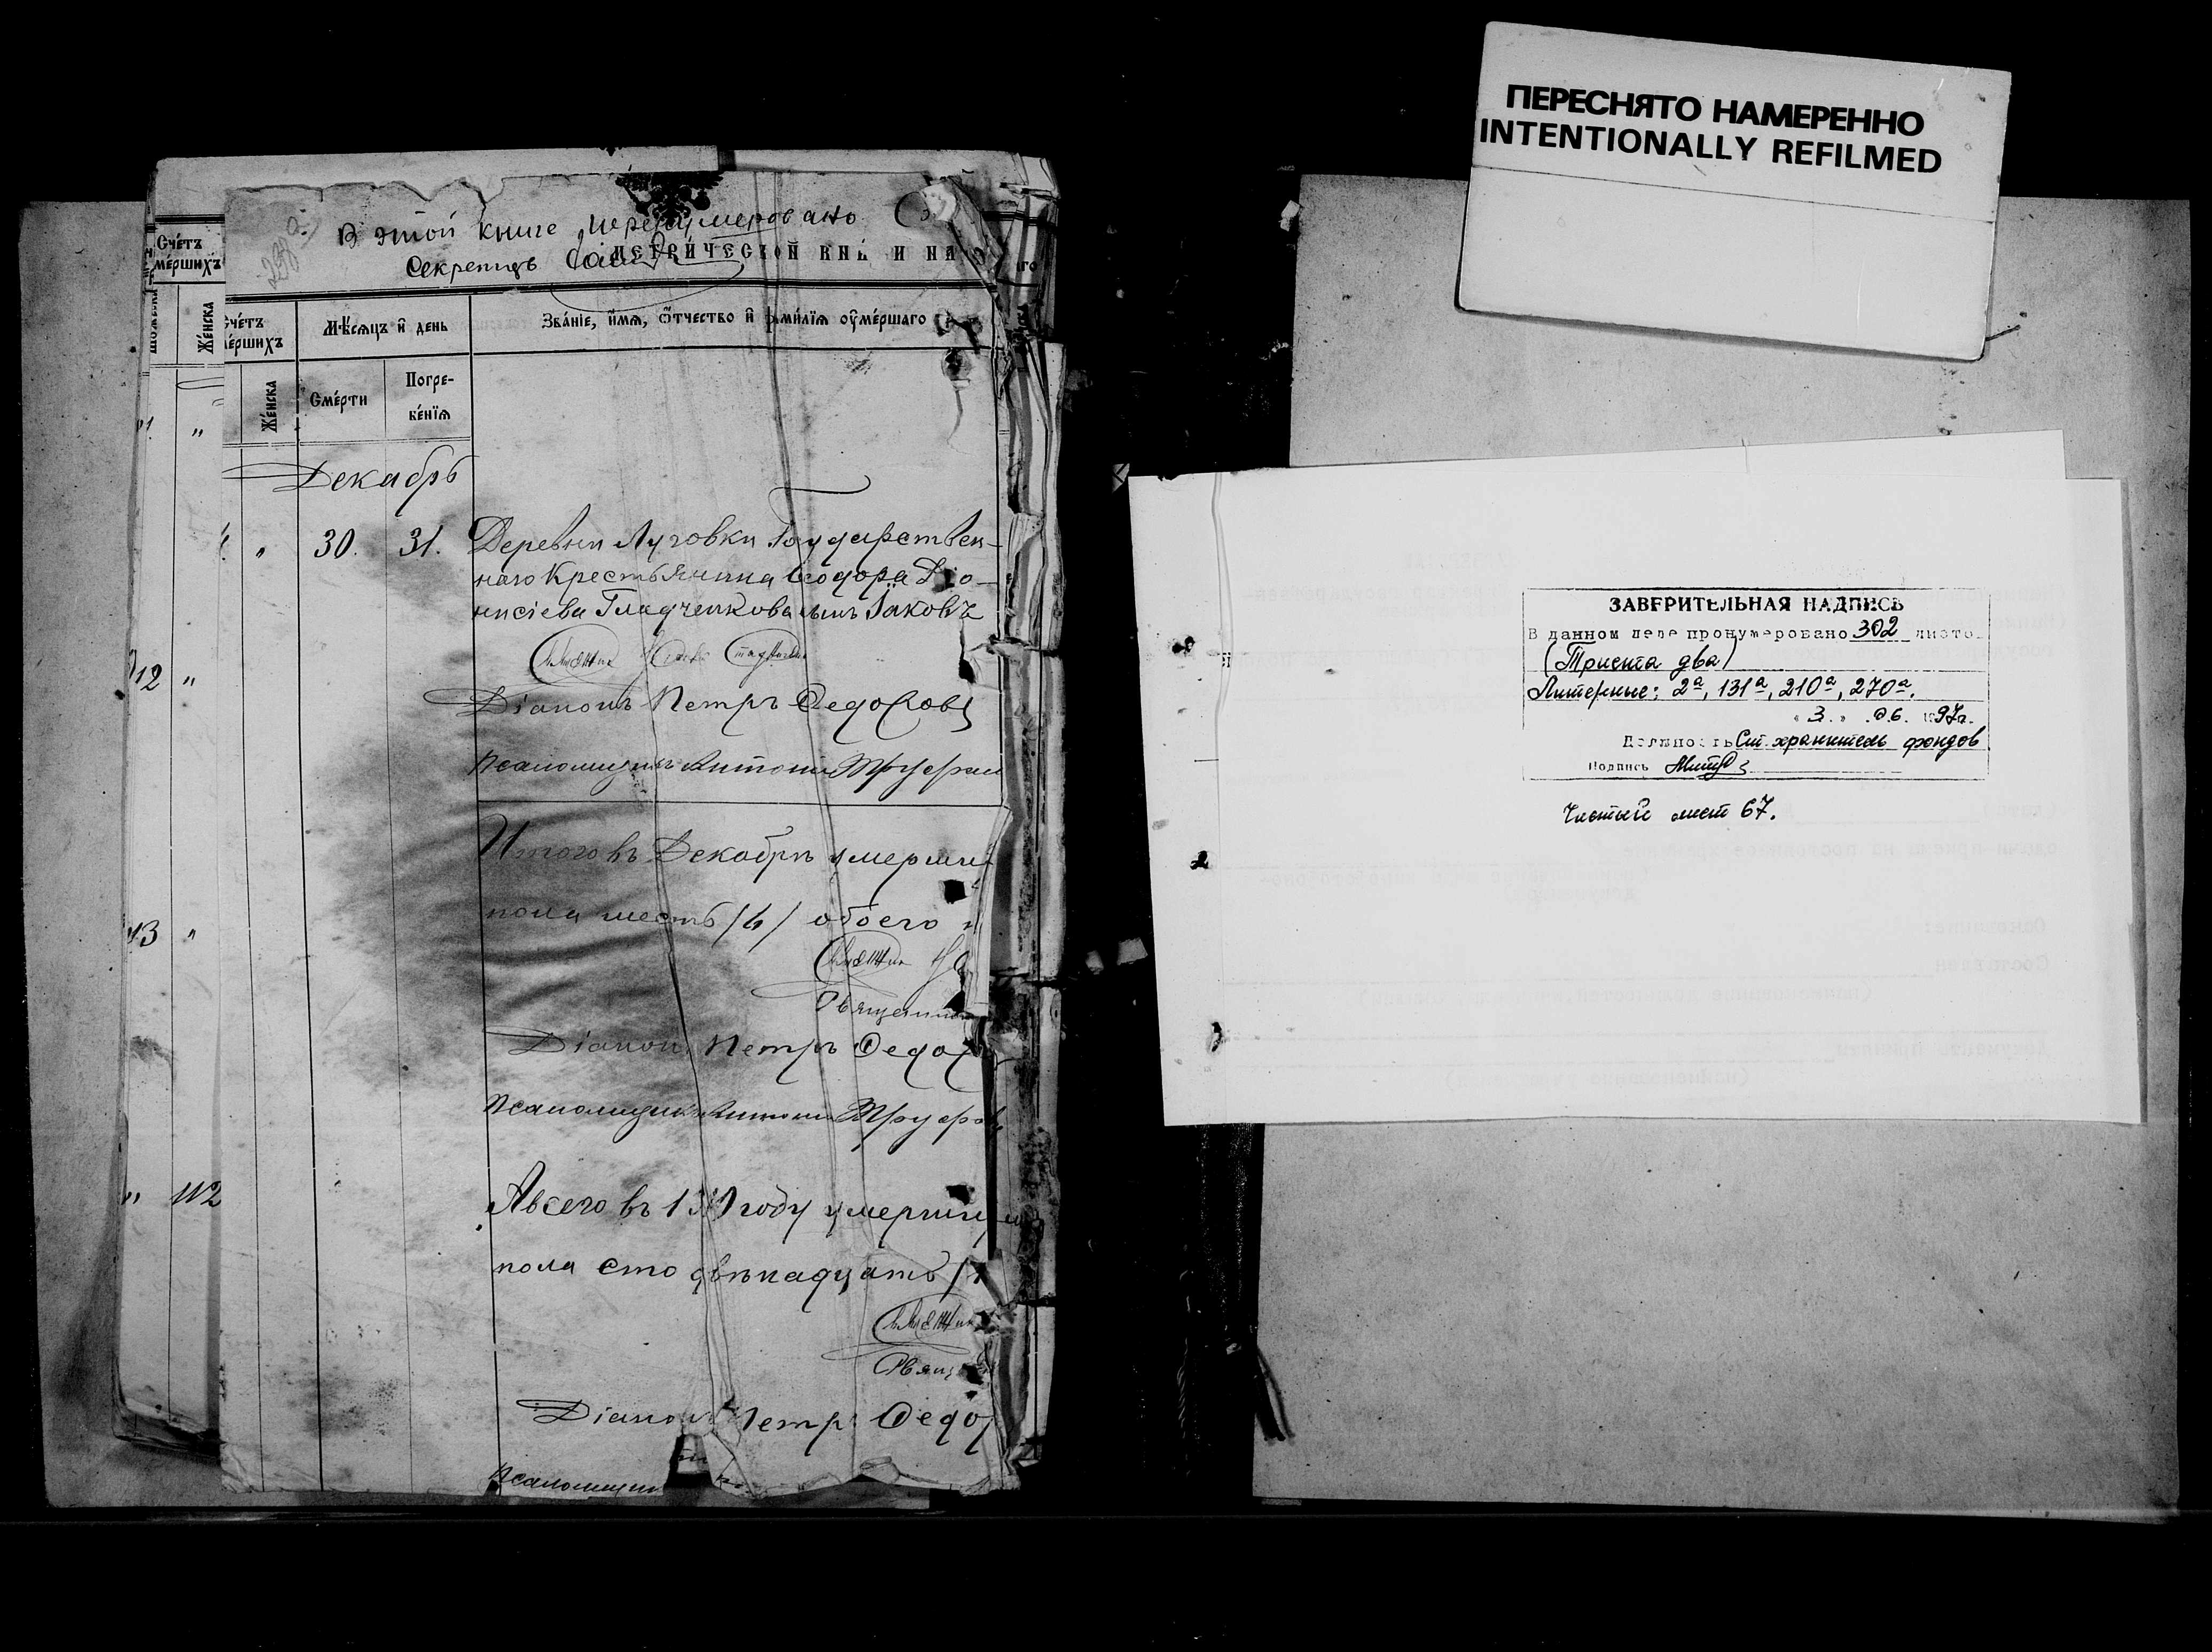 ПЕРЕСНЯТО НАМЕРЕННО
INTENTIONALLY REFILMED
В этой книге перенумеровано
Секретарь
МЕТРИ́ЧЕСКОЙ КНИ И НА
Сче́тъ
ме́ршихъ
Же́нска
Сче́тъ
ме́ршихъ
Мѣ́сяцъ и҆ день
Зва́нїе, и҆́мѧ, ѻ҆́тчество и҆ фами́лїѧ оу҆ме́ршагѡ
Же́нска
Сме́рти
Погре-
бе́нїѧ
Декабрь
" 30. 31. Деревни Луговки Государствен-
наго Крестьянина Ѳеодора Дio-
нисіева Гладченкова сынъ Іаковъ
12 "
Діаконъ Петръ Ѳедоровъ
Псаломщикъ Антоній
Итого въ Декабрѣ умерши
пола шесть /6/ обоего
13 "
Священник
Діаконъ Петръ Ѳедор
Псаломщикъ Антоній
" 112
А всего въ году умерши
пола сто двѣнадцать /1
Свящ
Діаконъ Петръ Ѳедо
Псаломщик
ЗАВЕРИТЕЛЬНАЯ НАДПИСЬ
В данном деле пронумеровано 302 листо
(Триста два)
Литерные: 2а, 131а, 210а, 270а.
" 3. " 06. 1997г.
Должность Ст. хранитель фондов
Подпись
Чистый лист 67.